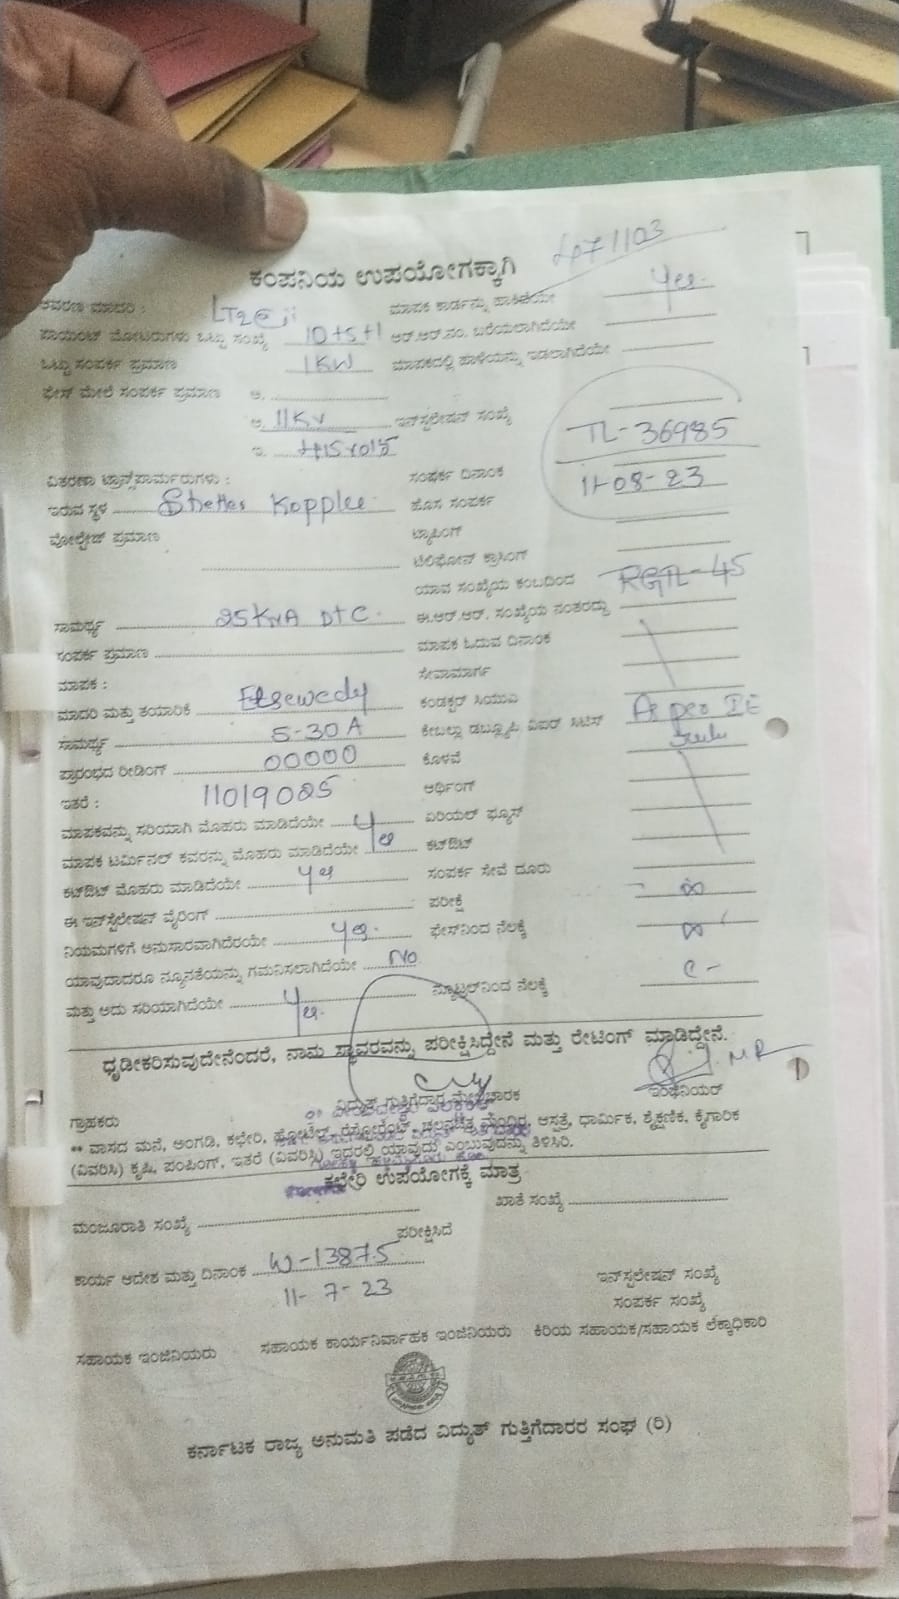 ಕಂಪನಿಯ ಉಪಯೋಗಕ್ಕಾಗಿ
ಮಾದರಿ : LT2 ಮಾಪಕ ಕಾರ್ಡನ್ನು ಹಾಕಿದೆಯೇ Yes
ಪಾಯಿಂಟ್ ಮೋಟರುಗಳು ಒಟ್ಟು ಸಂಖ್ಯೆ 10+5+1 ಆರ್.ಆರ್.ನಂ. ಬರೆಯಲಾಗಿದೆಯೇ
ಒಟ್ಟು ಸಂಪರ್ಕ ಪ್ರಮಾಣ 1KW ಮಾಪಕದಲ್ಲಿ ಹಾಳೆಯನ್ನು ಇಡಲಾಗಿದೆಯೇ
ಫೇಸ್ ಮೇಲೆ ಸಂಪರ್ಕ ಪ್ರಮಾಣ ಅ.
ಆ. 11Kv ಇನ್‌ಸ್ಟಲೇಷನ್ ಸಂಖ್ಯೆ TL-36985
ಇ.
ವಿತರಣಾ ಟ್ರಾನ್ಸ್‌ಫಾರ್ಮರುಗಳು : ಸಂಪರ್ಕ ದಿನಾಂಕ 11-08-23
ಇರುವ ಸ್ಥಳ Koppllu ಹೊಸ ಸಂಪರ್ಕ
ವೋಲ್ಟೇಜ್ ಪ್ರಮಾಣ ಟ್ಯಾಪಿಂಗ್
ಟೆಲಿಫೋನ್ ಕ್ರಾಸಿಂಗ್
ಯಾವ ಸಂಖ್ಯೆಯ ಕಂಬದಿಂದ RGTL-45
ಸಾಮರ್ಥ್ಯ 25KVA DTC. ಈ.ಆರ್.ಆರ್. ಸಂಖ್ಯೆಯ ನಂತರದ್ದು
ಸಂಪರ್ಕ ಪ್ರಮಾಣ ಮಾಪಕ ಓದುವ ದಿನಾಂಕ
ಮಾಪಕ : ಸೇವಾಮಾರ್ಗ
ಮಾದರಿ ಮತ್ತು ತಯಾರಿಕೆ Elsewedy ಕಂಡಕ್ಟರ್ ಸಿಯುಎ
ಸಾಮರ್ಥ್ಯ 5-30A As per IE
ಪ್ರಾರಂಭದ ರೀಡಿಂಗ್ 00000 ಕೊಳವೆ
ಇತರೆ : 11019025 ಅರ್ಥಿಂಗ್
ಮಾಪಕವನ್ನು ಸರಿಯಾಗಿ ಮೊಹರು ಮಾಡಿದೆಯೇ ಏರಿಯಲ್ ಫ್ಯೂಸ್
ಮಾಪಕ ಟರ್ಮಿನಲ್ ಕವರನ್ನು ಮೊಹರು ಮಾಡಿದೆಯೇ Yes ಕಟ್‌ಔಟ್
ಕಟ್‌ಔಟ್ ಮೊಹರು ಮಾಡಿದೆಯೇ Yes ಸಂಪರ್ಕ ಸೇವೆ ದೂರು
ಈ ಇನ್‌ಸ್ಟಲೇಷನ್ ವೈರಿಂಗ್ ಪರೀಕ್ಷೆ
ನಿಯಮಗಳಿಗೆ ಅನುಸಾರವಾಗಿದೆಯೇ Yes ಫೇಸ್‌ನಿಂದ ನೆಲಕ್ಕೆ
ಯಾವುದಾದರೂ ನ್ಯೂನತೆಯನ್ನು ಗಮನಿಸಲಾಗಿದೆಯೇ No
ಮತ್ತು ಅದು ಸರಿಯಾಗಿದೆಯೇ Yes. ನ್ಯೂಟ್ರಲ್‌ನಿಂದ ನೆಲಕ್ಕೆ
ಧೃಡೀಕರಿಸುವುದೇನೆಂದರೆ, ನಾನು ಸ್ಥಾವರವನ್ನು ಪರೀಕ್ಷಿಸಿದ್ದೇನೆ ಮತ್ತು ರೇಟಿಂಗ್ ಮಾಡಿದ್ದೇನೆ.
ಗ್ರಾಹಕರು ವಿದ್ಯುತ್ ಗುತ್ತಿಗೆದಾರ ಮೇಲ್ವಿಚಾರಕ ಇಂಜಿನಿಯರ್
** ವಾಸದ ಮನೆ, ಅಂಗಡಿ, ಕಛೇರಿ, ಹೋಟೆಲ್, ರೆಸ್ಟೋರೆಂಟ್, ಚಲನಚಿತ್ರ ಮಂದಿರ, ಆಸ್ಪತ್ರೆ, ಧಾರ್ಮಿಕ, ಶೈಕ್ಷಣಿಕ, ಕೈಗಾರಿಕ
(ವಿವರಿಸಿ) ಕೃಷಿ, ಪಂಪಿಂಗ್, ಇತರೆ (ವಿವರಿಸಿ) ಇದರಲ್ಲಿ ಯಾವುದು ಎಂಬುವುದನ್ನು ತಿಳಿಸಿರಿ.
ಕಛೇರಿ ಉಪಯೋಗಕ್ಕೆ ಮಾತ್ರ
ಮಂಜೂರಾತಿ ಸಂಖ್ಯೆ ಖಾತೆ ಸಂಖ್ಯೆ
ಪರೀಕ್ಷಿಸಿದೆ
ಕಾರ್ಯ ಆದೇಶ ಮತ್ತು ದಿನಾಂಕ W-13875
11-7-23
ಇನ್‌ಸ್ಟಲೇಷನ್ ಸಂಖ್ಯೆ
ಸಂಪರ್ಕ ಸಂಖ್ಯೆ
ಸಹಾಯಕ ಇಂಜಿನಿಯರು ಸಹಾಯಕ ಕಾರ್ಯನಿರ್ವಾಹಕ ಇಂಜಿನಿಯರು ಕಿರಿಯ ಸಹಾಯಕ/ಸಹಾಯಕ ಲೆಕ್ಕಾಧಿಕಾರಿ
ಕರ್ನಾಟಕ ರಾಜ್ಯ ಅನುಮತಿ ಪಡೆದ ವಿದ್ಯುತ್ ಗುತ್ತಿಗೆದಾರರ ಸಂಘ (ರಿ)